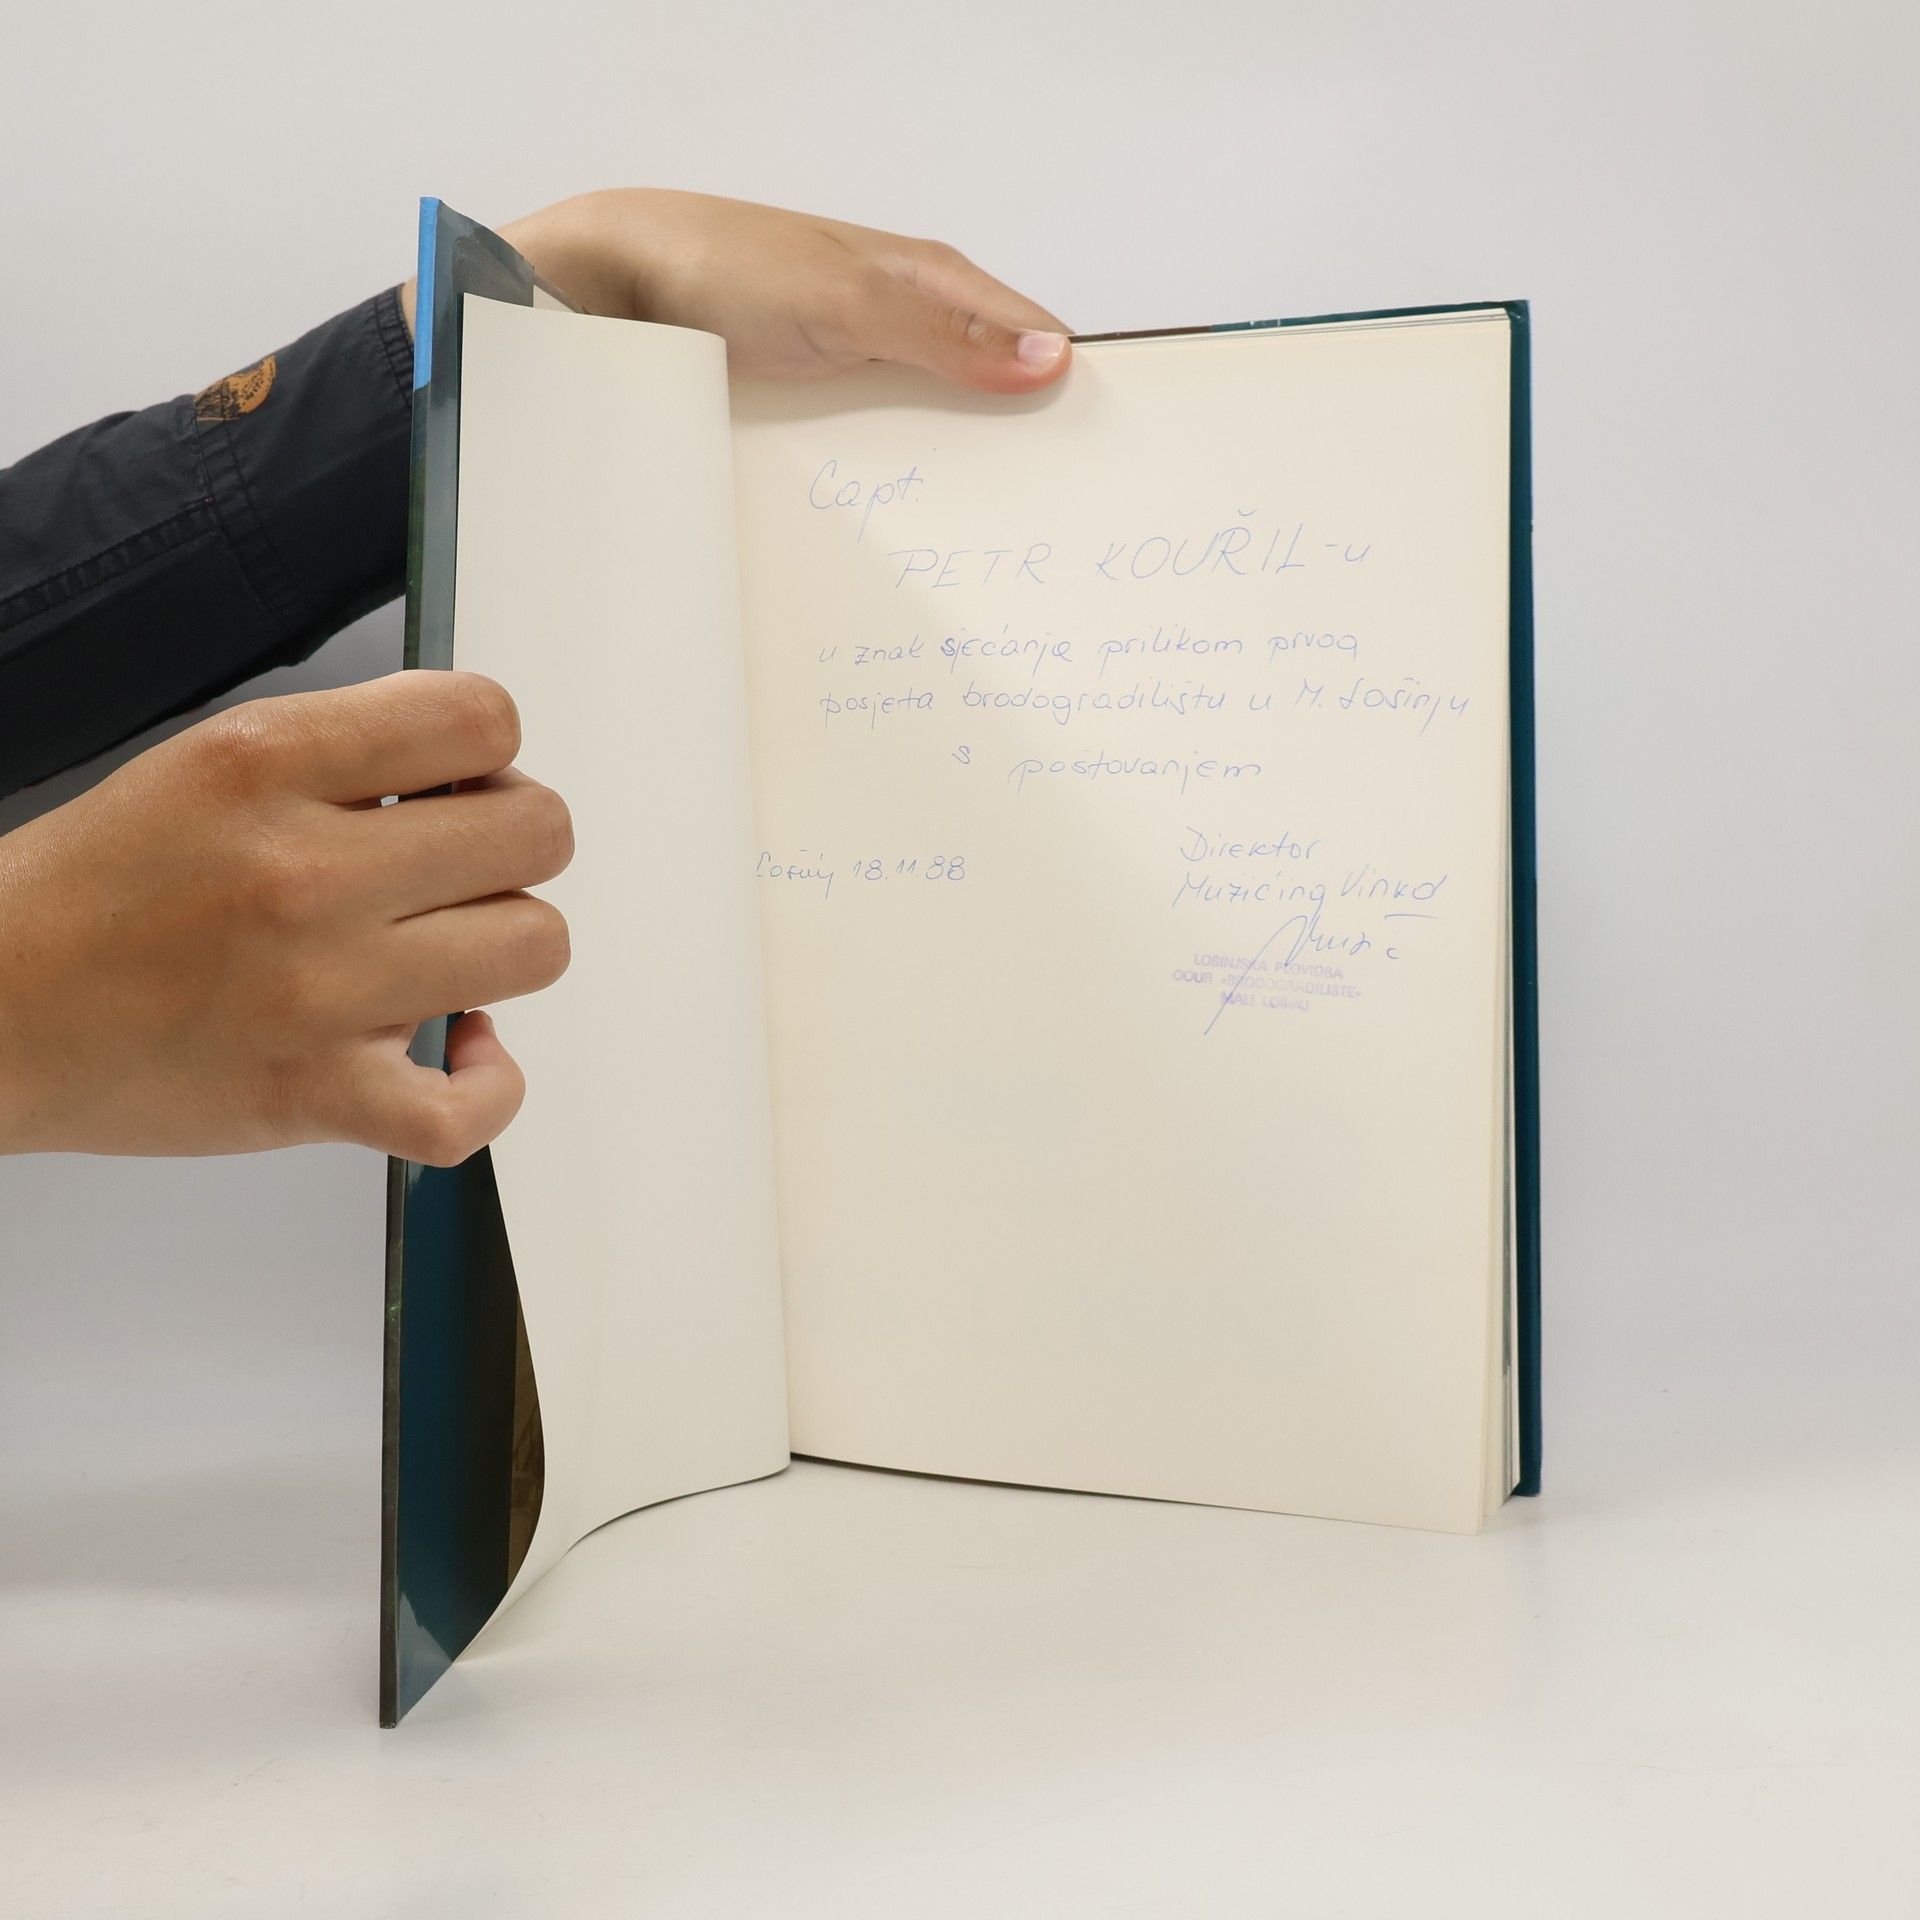 Capt.
PETR KOUŘIL-u
u znak sjećanja prilikom prvog
posjeta brodogradilištu u M. Lošinju
s poštovanjem
Lošinj 18.11.88.
Direktor
Mužić ing Vinko
Mužić
LOŠINJSKA PLOVIDBA
OOUR »BRODOGRADILIŠTE«
MALI LOŠINJ